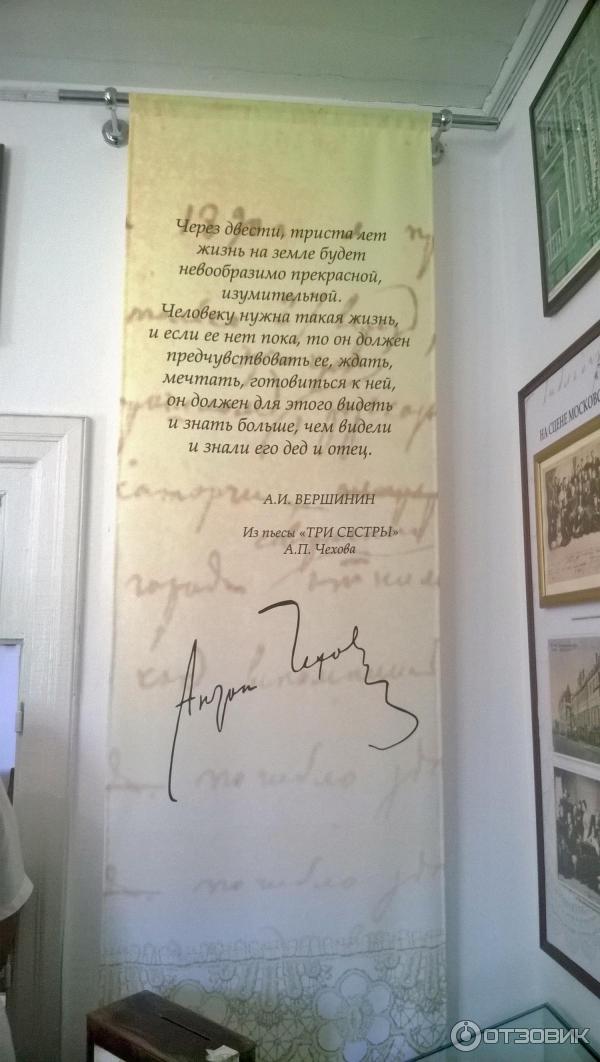 Через двести, триста лет
жизнь на земле будет
невообразимо прекрасной,
изумительной.
Человеку нужна такая жизнь,
и если ее нет пока, то он должен
предчувствовать ее, ждать,
мечтать, готовиться к ней,
он должен для этого видеть
и знать больше, чем видели
и знали его дед и отец.
А.И. ВЕРШИНИН
Из пьесы «ТРИ СЕСТРЫ»
А.П. Чехова
Антон Чехов
НА СЦЕНЕ МОСКОВС
ОТЗОВИК